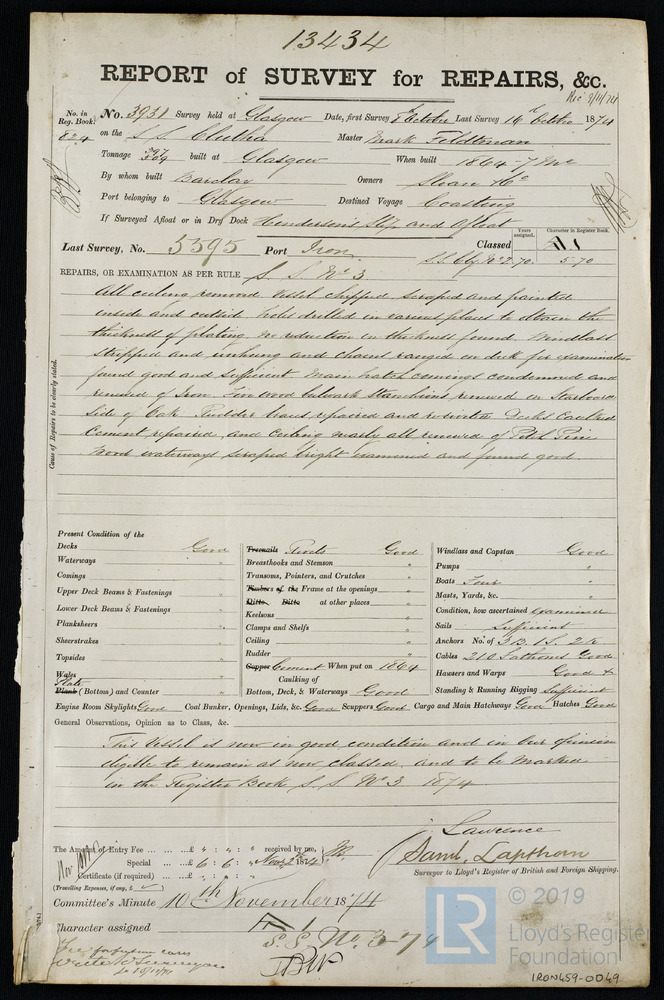 13434
REPORT of SURVEY for REPAIRS, &c.
Rec 9/11/74
No. in Reg. Book. No. 3931 Survey held at Glasgow Date, first Survey 8th October Last Survey 16th October 1874
824 on the S.S. Clutha Master Mark Feldtman
Tonnage 297 509 built at Glasgow When built 1864 - 7 Mo
By whom built Barclay Owners Sloan & Co
Port belonging to Glasgow Destined Voyage Coasting
If Surveyed Afloat or in Dry Dock Henderson's Slip and Afloat
Years assigned. Character in Register Book.
Last Survey, No. 5595 Port Iron Classed A 1
S.S. Gls. No 2-70. 5-70
REPAIRS, OR EXAMINATION AS PER RULE S. S. No 3
Cause of Repairs to be clearly stated.
All ceiling removed vessel chipped scraped and painted
inside and outside holes drilled in various places to obtain the
thickness of plating, no reduction in thickness found. Windlass
stripped and unhung and chains ranged on deck for examination
found good and sufficient Main hatch comings condemned and
renewed of Iron. Five wood bulwark Stanchions renewed on Starboard
Side of Oak Rudder braces repaired and Decks Caulked
Cement repaired, and Ceiling nearly all renewed of Pitch Pine
wood waterways scraped bright examined and found good.
Present Condition of the
Decks Good
Waterways "
Comings "
Upper Deck Beams & Fastenings "
Lower Deck Beams & Fastenings "
Planksheers "
Sheerstrakes "
Topsides "
Wales "
Plate
Plank (Bottom) and Counter "
Treenails Rivets Good
Breasthooks and Stemson "
Transoms, Pointers, and Crutches "
Timbers of the Frame at the openings "
Ditto Ditto at other places "
Keelsons "
Clamps and Shelfs "
Ceiling "
Rudder "
Copper Cement When put on 1864
Caulking of
Bottom, Deck, & Waterways Good
Windlass and Capstan Good
Pumps "
Boats Four "
Masts, Yards, &c. "
Condition, how ascertained Examined
Sails Sufficient
Anchors No. of 3 B. 1 S. 2 K
Cables 210 Fathoms Good
Hawsers and Warps Good +
Standing & Running Rigging Sufficient
Engine Room Skylights Good Coal Bunker, Openings, Lids, &c. Good Scuppers Good Cargo and Main Hatchways Good Hatches Good
General Observations, Opinion as to Class, &c.
This Vessel is now in good condition and in our opinion
eligible to remain as now classed, and to be marked
in the Register Book S. S. No 3 1874
The Amount of Entry Fee ... ... £ " : " : " received by me,
Special ... ... £ 6 : 6 : " Nov 2nd 1874
Certificate (if required) ... £ " : " : "
(Travelling Expenses, if any, £ )
Lawrence
Saml. Lapthorn
Surveyor to Lloyd's Register of British and Foreign Shipping.
Committee's Minute 10th November 1874
Character assigned A 1
S.S. No. 3-74
© 2019
LR
Lloyd's Register
Foundation
IRON459-0049